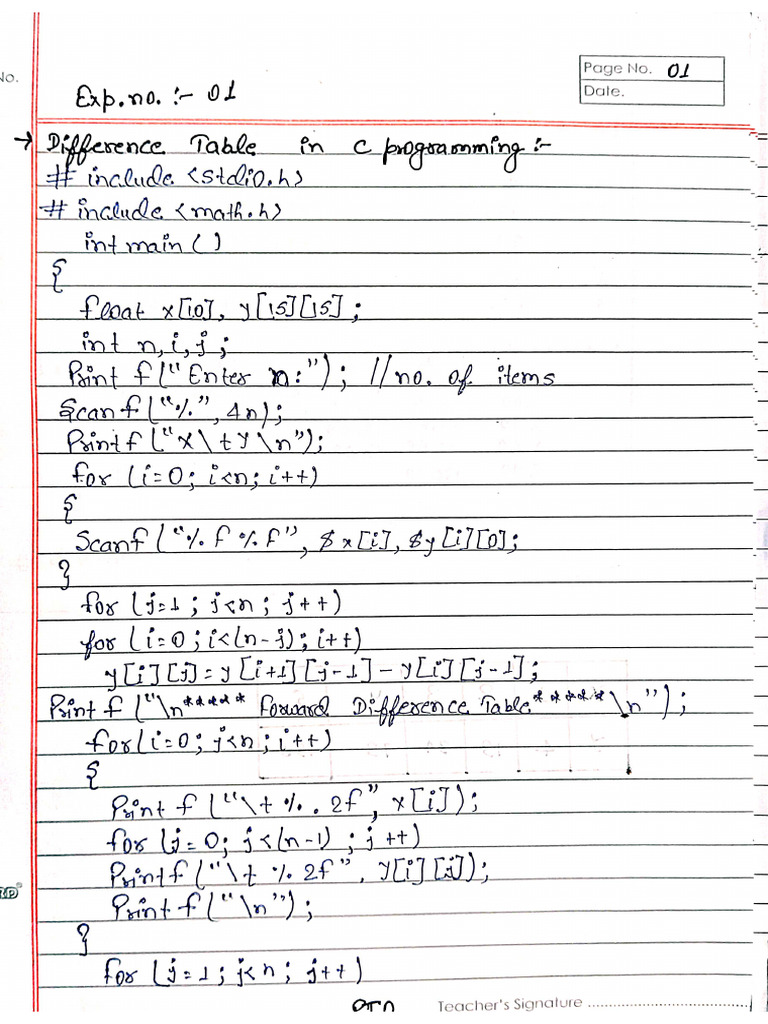 No.
Page No. 01
Date.
Exp.no. :- 01
→ Difference Table in C programming :-
# include <stdio.h>
# include <math.h>
int main ( )
{
float x[10], y[15][15] ;
int n, i, j ;
Print f ("Enter n:") ; //no. of items
Scanf ("%", &n);
Printf ("x\ty\n");
for (i=0; i<n; i++)
{
Scanf ("%f %f", &x[i], &y[i][0];
}
for (j=1 ; j<n ; j++)
for (i=0 ; i<(n-j); i++)
y[i][j] = y[i+1][j-1] - y[i][j-1] ;
Print f ("\n***** Forward Difference Table *****\n") ;
for(i=0; j<n ; i++)
{
Print f ("\t %. 2f", x[i]);
for (j=0; j<(n-1) ; j ++)
Printf ("\t % 2f", y[i][j]);
Print f ("\n") ;
}
for (j=1 ; j<n ; j++)
PTO
Teacher's Signature